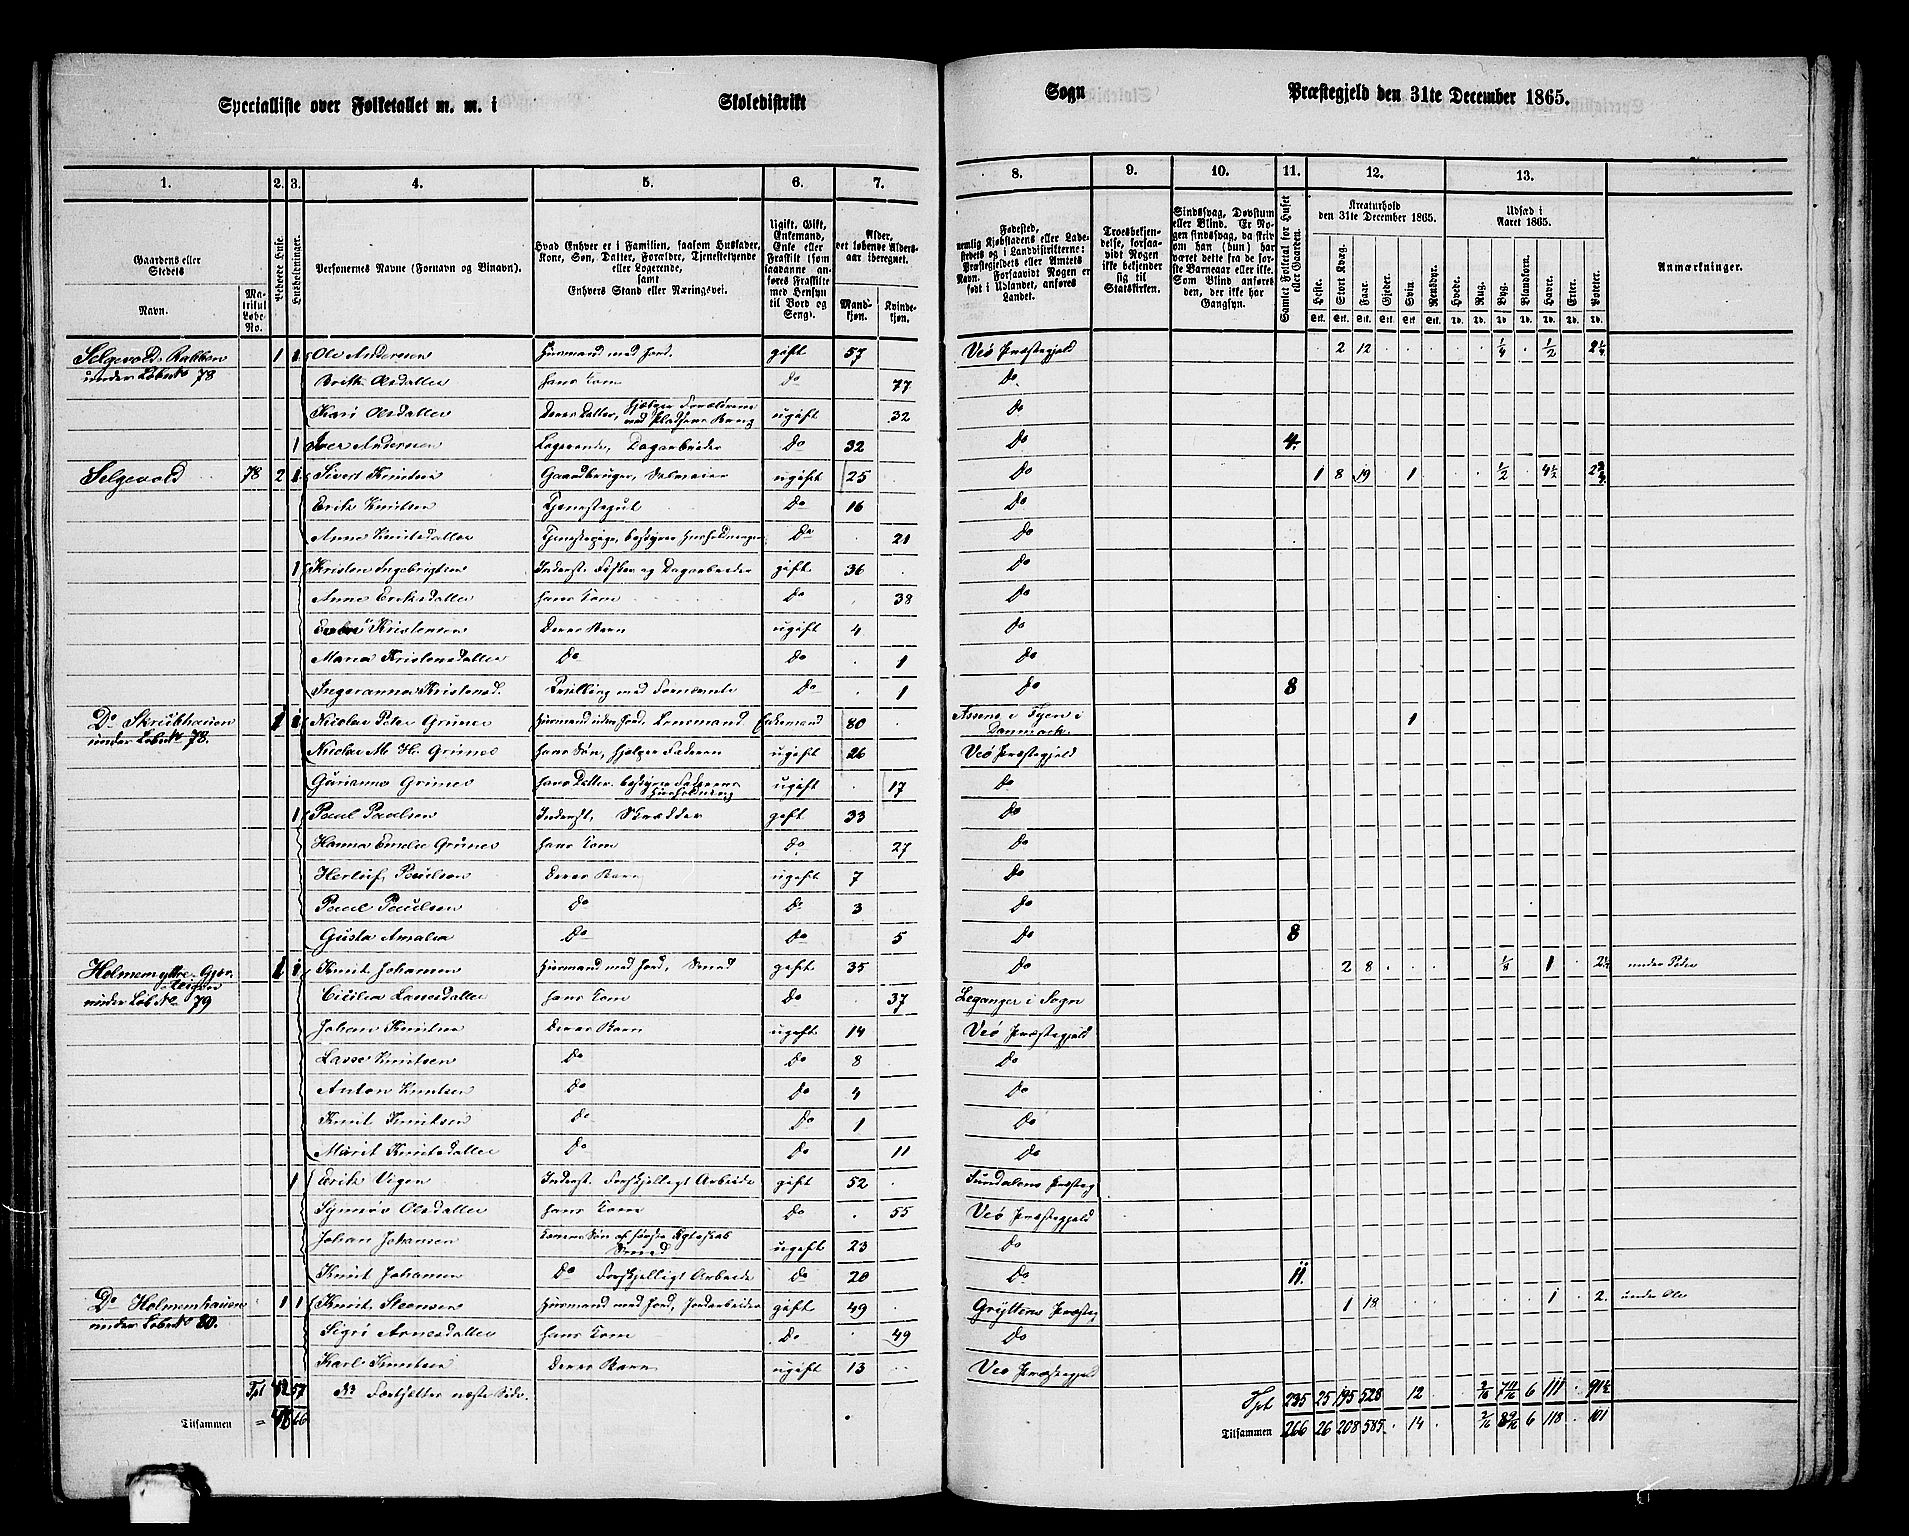 Specialliste over Folketallet m. m. i Skoledistrikt Sogn Præstegjeld den 31te December 1865.
1. 2. 3. 4. 5. 6. 7. 8. 9. 10. 11. 12. 13.
Gaardens eller Stedets
Navn. Matrikul Løbe-No.
Beboede Huse.
Husholdninger.
Personernes Navne (Fornavn og Binavn).
Hvad Enhver er i Familien, saasom Husfader, Kone, Søn, Datter, Forældre, Tjenestetyende eller Logerende, samt Enhvers Stand eller Næringsvei.
Ugift, Gift, Enkemand, Enke eller Fraskilt (som saadanne anføres Fraskilte med Hensyn til Bord og Seng).
Alder, det løbende Aldersaar iberegnet.
Mandkjøn. Kvindekjøn.
Fødested, nemlig Kjøbstadens eller Ladestedets og i Landdistrikterne: Præstegjeldets eller Amtets Navn. Forsaavidt Nogen er født i Udlandet, anføres Landet.
Troesbekjendelse, forsaavidt Nogen ikke bekjender sig til Statskirken.
Sindssvag, Døvstum eller Blind. Er Nogen sindssvag, da skriv om han (hun) har været dette fra de første Barneaar eller ikke. Som Blind anføres den, der ikke har Gangsyn.
Samlet Folketal for Huset eller Gaarden.
Kreaturhold den 31te December 1865.
Heste. Stort Kvæg. Faar. Gjeder. Svin. Rensdyr.
Udsæd i Aaret 1865.
Hvede. Rug. Byg. Blandkorn. Havre. Erter. Poteter.
Anmærkninger.
Selgevold-Rakken 1 1 Ole Andersen Husmand med Jord. gift 57 Veø Præstegjeld 2 12 1/4 1/2 2 1/4
under Løbe No 78 Brith Olsdatter hans Kone Do 77 Do
Kari Olsdatter Deres Datter, hjelper Forældrene ved Pladsens Brug ugift 32 Do
1 Iver Andersen Logerende, Dagarbeider Do 32 Do 4
Selgevold 78 2 1 Sivert Knutsen Gaardbruger, Selveier ugift 25 Do 1 8 19 1 1/2 4 1/2 2 3/4
Erik Knutsen Tjenestegut Do 16 Do
Anne Knutsdatter Tjenestepige, bestyrer Husholdningen Do 21 Do
1 Kristen Ingebrigtsen Inderst. Fisker og Dagarbeider gift 36 Do
Anne Eriksdatter hans Kone Do 38 Do
Kristensen Deres Barn ugift 4 Do
Maria Kristensdatter Do Do 1 Do
Ingeranna Kristensd. Tvilling med Fornævnte Do 1 Do 8
Do Skrubhausen 1 1 Nicolai Peter Grüner Husmand uden Jord, Lensmand Enkemand 80 Assens i Fyen i Danmark. 1
under Løbe No 78. Nicolai M. H. Grunes hans Søn, hjelper Faderen ugift 26 Veø Præstegjeld
Gurianna Grunes hans Datter. bestyrer Faderens Husholdning ugift 17 Do
1 Paul Paulsen Inderst, Skrædder gift 33 Do
Hanna Emelie Grunes hans Kone Do 27 Do
Herluf Paulsen Deres Barn ugift 7 Do
Paul Paulsen Do Do 3 Do
Gusta Amalia Do Do 5 Do 8
Holmemyttre-Gjør- 1 1 Knut Johansen Husmand med Jord, Smed gift 35 Do 2 8 1/8 1 2 1/4 under Peder
teigen
under Løb No 79 Cicilia Lassesdatter hans Kone Do 37 Leganger i Sogn
Johan Knutsen Deres Barn ugift 14 Veø Præstegjeld
Lasse Knutsen Do Do 8 Do
Anton Knutsen Do Do 4 Do
Knut Knutsen Do Do 1 Do
Marit Knutsdatter Do Do 11 Do
1 Erik Vigen Inderst. Forskjelligt Arbeide gift 52 Sundalens Præsteg
Synnøv Olsdatter hans Kone Do 55 Veø Præstegjeld
Johan Johansen Konens Søn af første Ægteskab Smed ugift 23 Do
Knut Johansen Do Forskjelligt Arbeide Do 20 Do 11.
Do Holmemhausen 1 1 Knut Steensen Husmand med Jord, Jordarbeider gift 49 Gryttens Præsteg 1 18 1 2. under Ole
under Løbe No 80. Sigri Arnesdatter hans Kone Do 49 Do
Karl Knutsen Deres Barn ugift 13 Veø Præstegjeld
Tpt 42 57 NB Fortsetter næste Side. Tpt 235 25 195 528 12 3/16 7 11/16 6 111 91 1/2
Tilsammen = 48 66 Tilsammen 266 26 208 585. 14 3/16 8 9/16 6 118 101